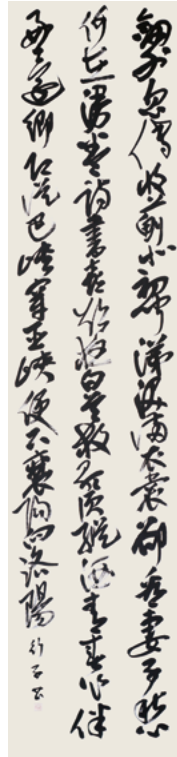 劍外忽傳收薊北初聞涕淚滿衣裳卻看妻子愁
何在漫卷詩書喜欲狂白首放歌須縱酒青春作伴
好還鄉即從巴峽穿巫峽便下襄陽向洛陽